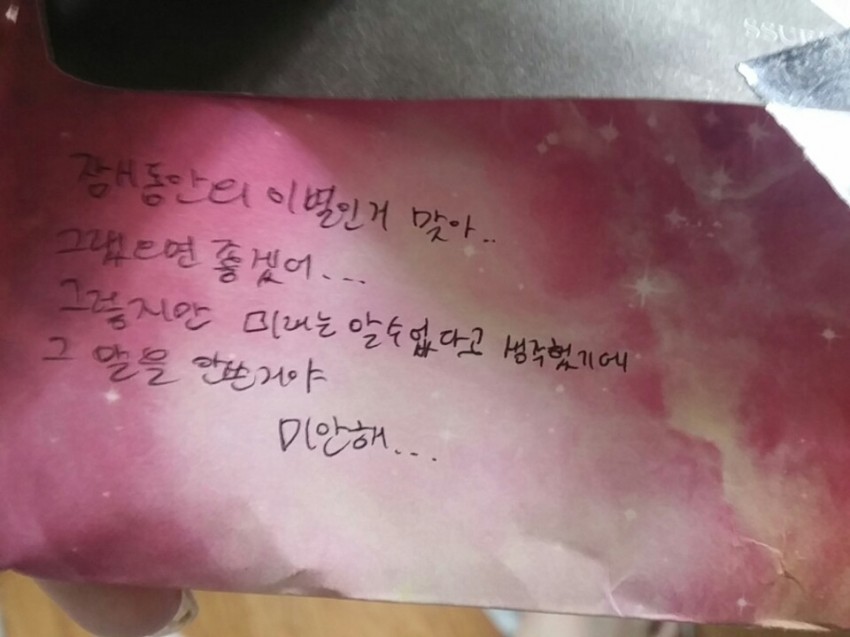 SSUR
잠시동안의 이별인거 맞아..
그랬으면 좋겠어....
그렇지만 미래는 알수없다고 생각했기에
그 말을 안쓴거야
미안해...